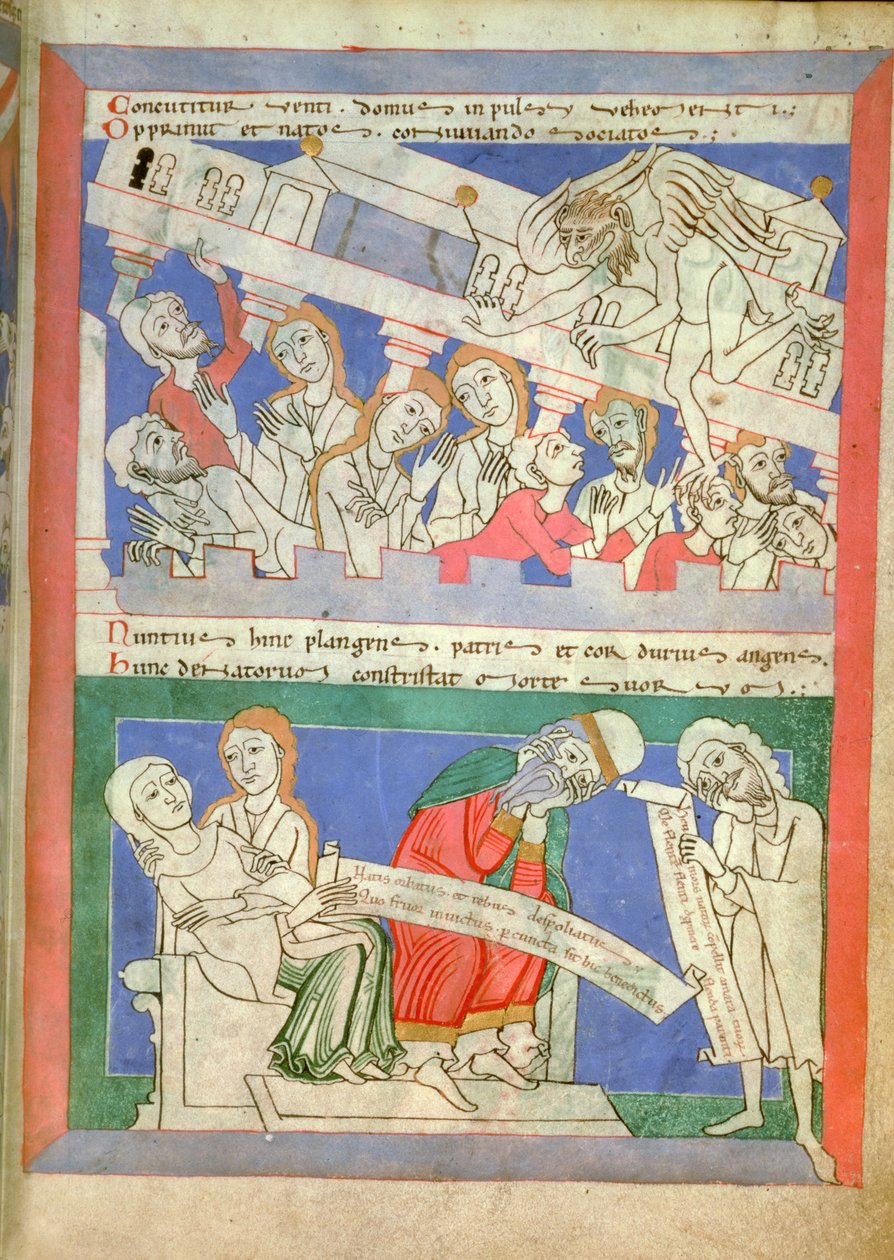 Concutitur venti . domus inpulsu vehementi .
Opprimit et natos . conviuando sociatos .
Nuntius hinc plangens . patris et cor durius angens .
hunc constristat morte suorum .
Natis orbatus . et rebus despoliatus
Quo fruor invictus . per cuncta sit hic benedictus
mors natorum amara tuorum